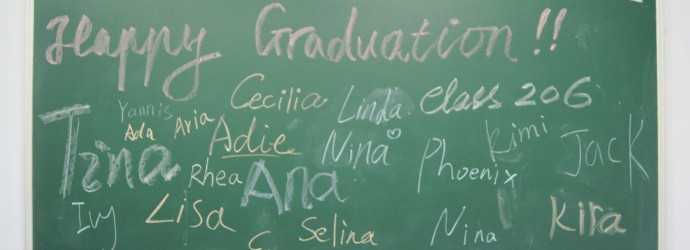 Happy Graduation!!
Cecilia Linda class 206
Yannis Ada Aria Adie Nina Kimi Jack
Tina Rhea Ana Phoenix
Ivy Lisa Selina Nina Kira